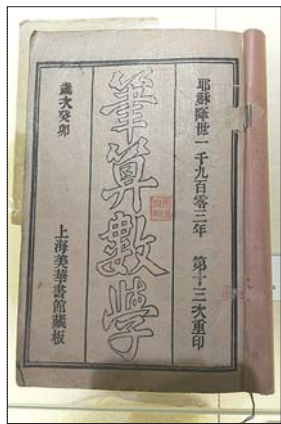 耶穌降世一千九百零三年 第十三次重印
筆算數學
歲次癸卯
上海美華書館藏板